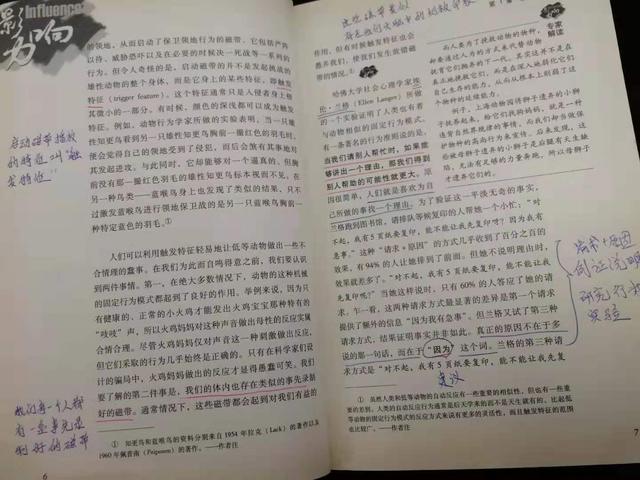 影响力
Influence
的领地，从而启动了保卫领地行为的磁带，它包括严阵
以待、威胁恐吓以及在必要的时候决一死战等一系列的
行为。但令人奇怪的是，启动磁带的并不是发起挑战的
雄性动物的整个身体，而是它身上的某些特征，即触发
特征（trigger feature）。这个特征通常只是入侵者身上极
其微小的一部分。有时候，颜色的深浅都可以成为触发
特征。例如，动物行为学家所做的实验表明，当一只雄
性知更鸟看到另一只雄性知更鸟胸前一撮红色的羽毛时，
便会觉得自己的领地受到了侵犯，而后会煞有其事地对
其发起进攻。与此同时，它却能够对一个逼真的、但胸
前没有那一撮红色羽毛的雄性知更鸟标本视而不见。在
另一种鸟类——蓝喉鸟身上也发现了类似的结果，只不
过激发蓝喉鸟进行领地保卫战的是另一只蓝喉鸟胸前一
种特定蓝色的羽毛。①
启动磁带播放
的特征叫“触
发特征”
人们可以利用触发特征轻易地让低等动物做出一些不
合情理的蠢事。在我们为此而自鸣得意之前，我们要认识
到两件事情。第一，在绝大多数情况下，动物的这种机械
的固定行为模式都起到了良好的作用。举例来说，因为只
有健康的、正常的小火鸡才能发出火鸡宝宝那种特有的
“吱吱”声，所以火鸡妈妈对这种声音做出母性的反应实属
合情合理。尽管火鸡妈妈仅对声音这一种刺激做出反应，
但它们采取的行为几乎始终是正确的。只有在科学家们设
计的骗局中，火鸡妈妈做出的反应才显得愚蠢可笑。我们
要了解的第二件事是，我们的体内也存在类似的事先录制
好的磁带。通常情况下，这些磁带都会起到对我们有益的
我们每一个人都
有
好的磁带
① 知更鸟和蓝喉鸟的资料分别来自1954年拉克（Lack）的著作以及
1960年佩普南（Peiponen）的著作。——作者注
6
作用，但有时候触发特征也会
愚弄我们，使我们发生放错磁
带的情况。①
哈佛大学社会心理学家埃
伦·兰格（Ellen Langer）所做
的一个实验证明了人类也有着
与动物相似的固定行为模式。
有一条著名的行为准则说的是，
当我们请别人帮忙时，如果能
够讲出一个理由，那我们得到
别人帮助的可能性就更大。原
因很简单，人们就是喜欢为自
己所做的事找一个理由。为了验证这一平淡无奇的事实，
兰格跑到图书馆，请排队等候复印的人帮她一个小忙：“对
不起，我有5页纸要复印，能不能让我先复印呢？因为我有
急事。”这种“请求+原因”的方式几乎收到了百分之百的
效果，有94%的人让她排到了前面。但她不说明理由时，
效果就差多了。“对不起，我有5页纸要复印，能不能让我
先复印呢？”当她这样说时，只有60%的人答应了她的请
求。乍一看，这两种请求方式最显著的差异是第一个请求
提供了额外的信息“因为我有急事”。但兰格又试了第三种
请求方式，结果证明事实并非如此。真正的原因不在于多
说的那一句话，而在于“因为”这个词。兰格的第三种请
求方式是“对不起，我有5页纸要复印，能不能让我先复印
专家
解读
请求+原因
研究行为
实验
① 虽然人类和低等动物的自动反应有一些重要的相似性，但也有一些重要的
差别。人类的自动反应行为通常是后天学来的而不是天生就有的。比起低
等动物的固定行为模式的反应方式来说有更多的灵活性，而且触发特征的范围
也比较广。——作者注
7